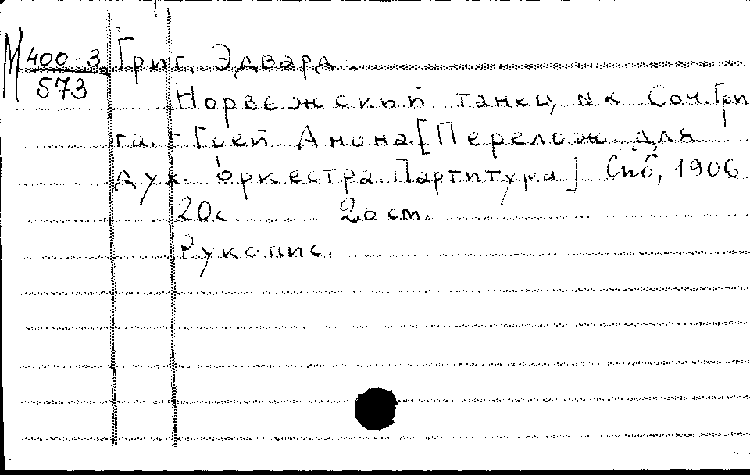 М 400-3 Григ, Эдвард.
573
Норвежский танец, Соч. Гри
га. Анона [Перелож. для
дух. оркестра. Партитура] Спб, 1906
20с. 20 см.
Рукопис.